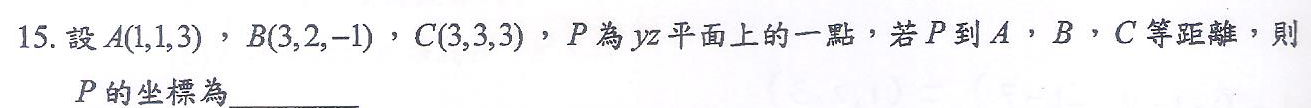 15. 設 A(1,1,3)，B(3,2,−1)，C(3,3,3)，P 為 yz 平面上的一點，若 P 到 A，B，C 等距離，則
P 的坐標為________